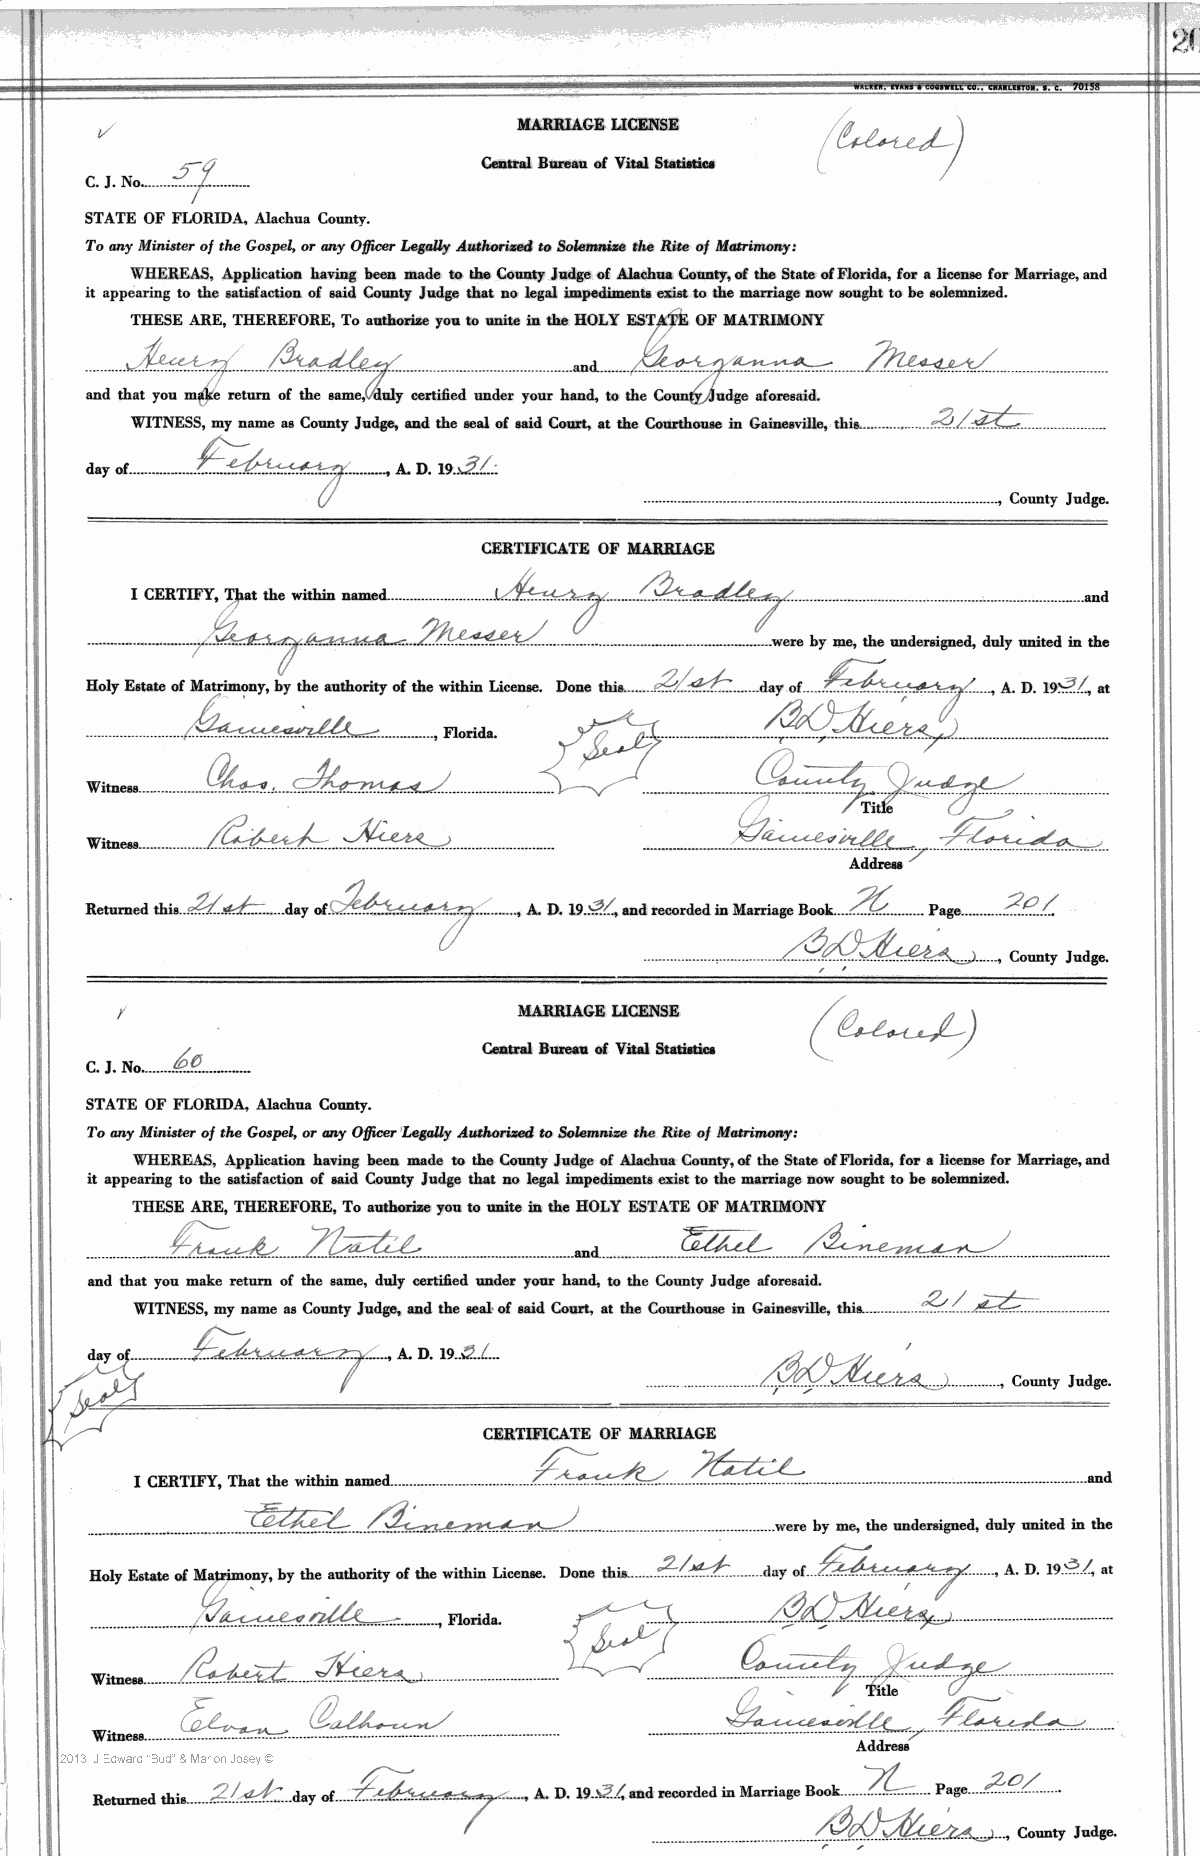 20
WALKER, EVANS & COGSWELL CO., CHARLESTON, S. C. 70158
MARRIAGE LICENSE (Colored)
Central Bureau of Vital Statistics
C. J. No. 59
STATE OF FLORIDA, Alachua County.
To any Minister of the Gospel, or any Officer Legally Authorized to Solemnize the Rite of Matrimony:
WHEREAS, Application having been made to the County Judge of Alachua County, of the State of Florida, for a license for Marriage, and
it appearing to the satisfaction of said County Judge that no legal impediments exist to the marriage now sought to be solemnized.
THESE ARE, THEREFORE, To authorize you to unite in the HOLY ESTATE OF MATRIMONY
Henry Bradley and Georganna Messer
and that you make return of the same, duly certified under your hand, to the County Judge aforesaid.
WITNESS, my name as County Judge, and the seal of said Court, at the Courthouse in Gainesville, this 21st
day of February, A. D. 1931.
, County Judge.
CERTIFICATE OF MARRIAGE
I CERTIFY, That the within named Henry Bradley and
Georganna Messer were by me, the undersigned, duly united in the
Holy Estate of Matrimony, by the authority of the within License. Done this 21st day of February, A. D. 1931, at
Gainesville, Florida. Seal B D Hiers
Witness Chas. Thomas County Judge
Title
Witness Robert Hiers Gainesville, Florida
Address
Returned this 21st day of February, A. D. 1931, and recorded in Marriage Book N Page 201.
B D Hiers, County Judge.
MARRIAGE LICENSE (Colored)
Central Bureau of Vital Statistics
C. J. No. 60
STATE OF FLORIDA, Alachua County.
To any Minister of the Gospel, or any Officer Legally Authorized to Solemnize the Rite of Matrimony:
WHEREAS, Application having been made to the County Judge of Alachua County, of the State of Florida, for a license for Marriage, and
it appearing to the satisfaction of said County Judge that no legal impediments exist to the marriage now sought to be solemnized.
THESE ARE, THEREFORE, To authorize you to unite in the HOLY ESTATE OF MATRIMONY
Frank Natil and Ethel Bineman
and that you make return of the same, duly certified under your hand, to the County Judge aforesaid.
WITNESS, my name as County Judge, and the seal of said Court, at the Courthouse in Gainesville, this 21st
day of February, A. D. 1931.
Seal B D Hiers, County Judge.
CERTIFICATE OF MARRIAGE
I CERTIFY, That the within named Frank Natil and
Ethel Bineman were by me, the undersigned, duly united in the
Holy Estate of Matrimony, by the authority of the within License. Done this 21st day of February, A. D. 1931, at
Gainesville, Florida. Seal B D Hiers
Witness Robert Hiers County Judge
Title
Witness Elvan Calhoun Gainesville, Florida
Address
2013 J Edward "Bud" & Marion Josey ©
Returned this 21st day of February, A. D. 1931, and recorded in Marriage Book N Page 201.
B D Hiers, County Judge.